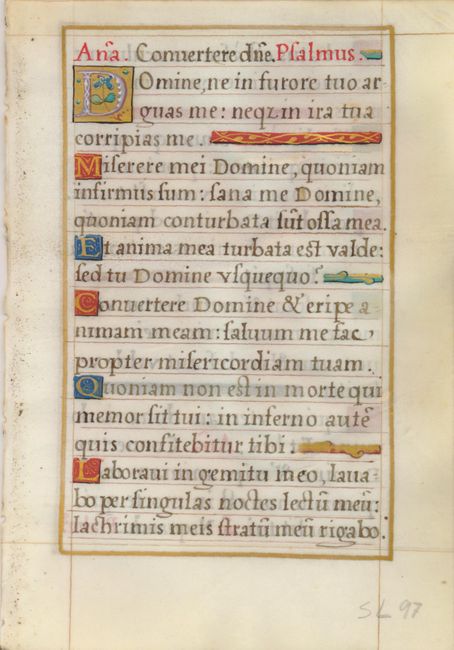 Anã. Conuertere dñe. Psalmus.
Domine, ne in furore tuo ar-
guas me: neqz in ira tua
corripias me.
Miserere mei Domine, quoniam
infirmus sum: sana me Domine,
quoniam conturbata sũt ossa mea.
Et anima mea turbata est valde:
sed tu Domine vsquequo?
Conuertere Domine & eripe a-
nimam meam: saluum me fac
propter misericordiam tuam.
Quoniam non est in morte qui
memor sit tui: in inferno autẽ
quis confitebitur tibi.
Laboraui in gemitu meo, laua-
bo per singulas noctes lectũ meũ:
lachrimis meis stratũ meũ rigabo.
SL 97